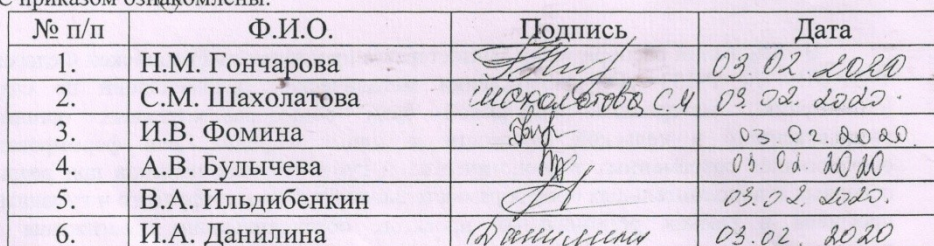 С приказом ознакомлены:
№ п/п Ф.И.О. Подпись Дата
1. Н.М. Гончарова 03.02.2020
2. С.М. Шахолатова Шахолатова С.М 03.02.2020.
3. И.В. Фомина 03.02.2020
4. А.В. Булычева 03.02.2020
5. В.А. Ильдибенкин 03.02.2020.
6. И.А. Данилина Данилина 03.02.2020